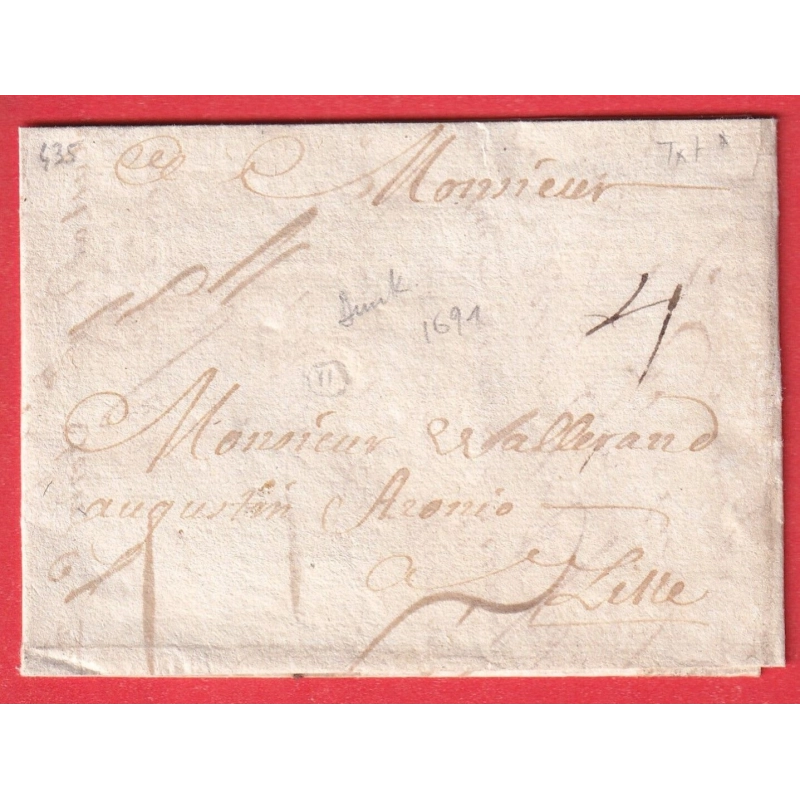 435
Monsieur
4
Dunk
1691
II
A Monsieur Wallerand
augustin Aronio
a Lille